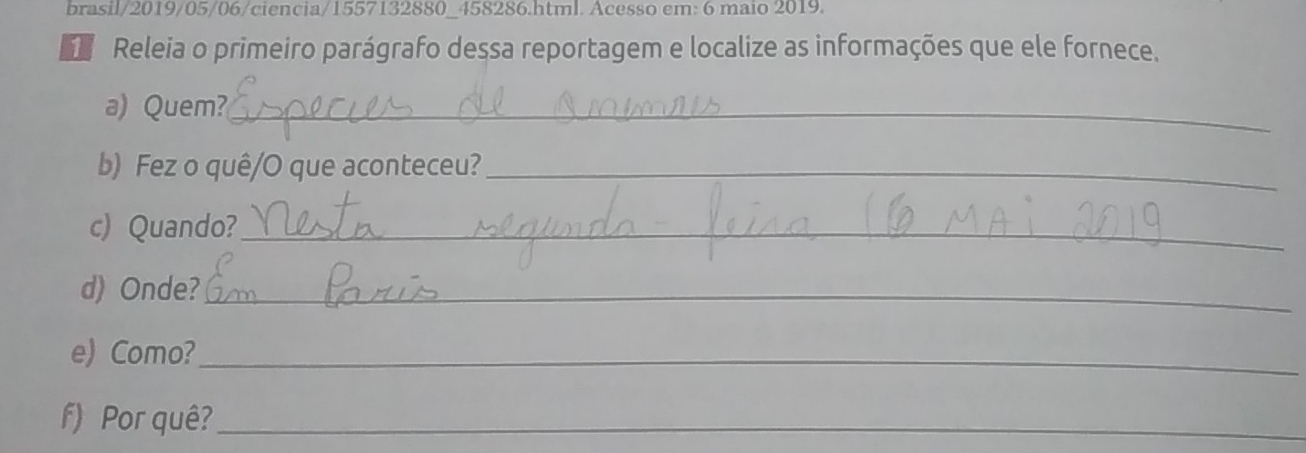 brasil/2019/05/06/ciencia/1557132880_458286.html. Acesso em: 6 maio 2019.
1 Releia o primeiro parágrafo dessa reportagem e localize as informações que ele fornece.
a) Quem? Especies de animais
b) Fez o quê/O que aconteceu?
c) Quando? Nesta segunda-feira 6 MAi 2019
d) Onde? Em Paris
e) Como?
f) Por quê?